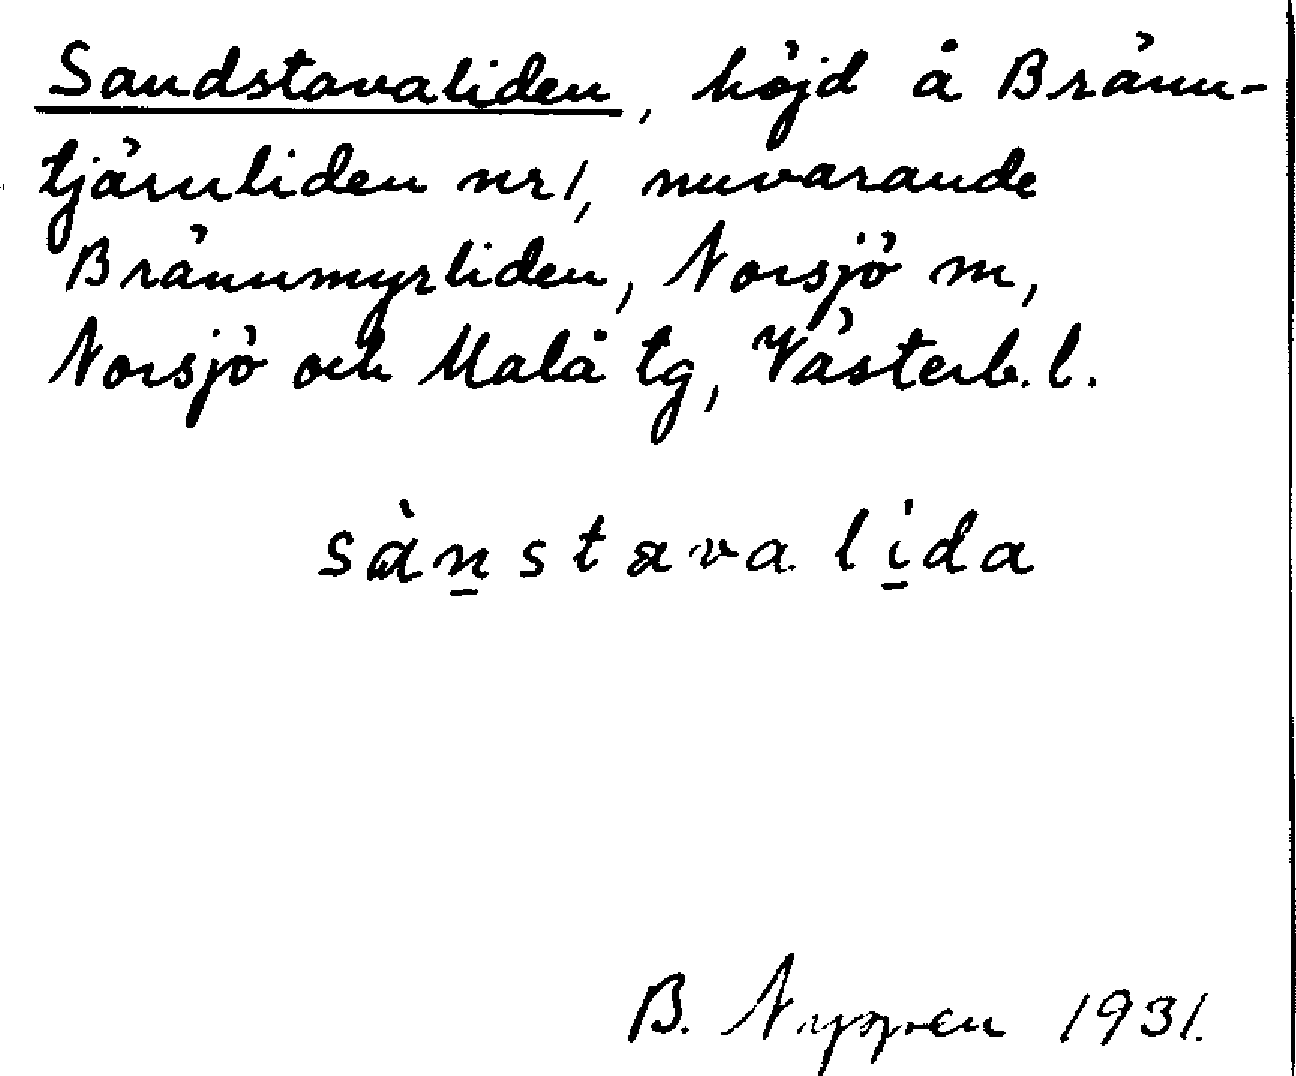 Sandstavaliden, höjd å Bränn-
tjärnliden nr 1, nuvarande
Brännmyrliden, Norsjö sn,
Norsjö och Malå tg, Västerb. l.
sànstava lida
B. 1931.